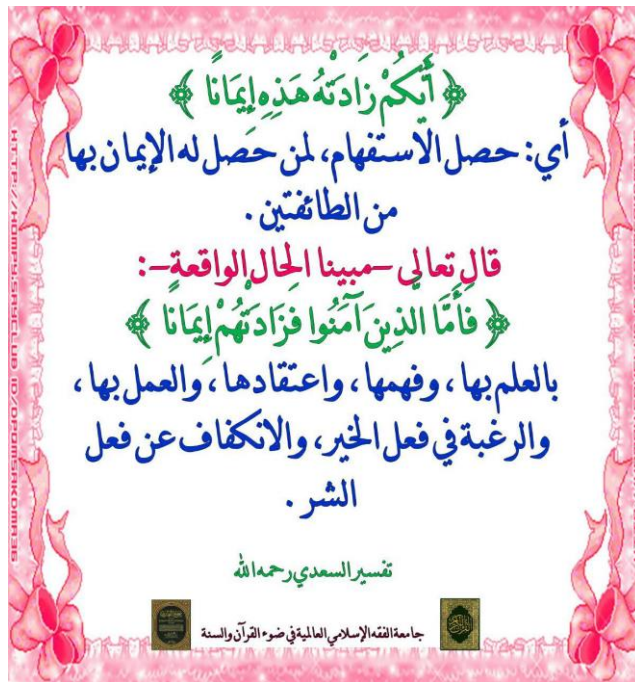 ﴿ أَيُّكُمْ زَادَتْهُ هَذِهِ إِيمَانًا ﴾
أي: حصل الاستفهام، لمن حصل له الإيمان بها
من الطائفتين .
قال تعالى –مبينا الحال الواقعة–:
﴿ فَأَمَّا الَّذِينَ آمَنُوا فَزَادَتْهُمْ إِيمَانًا ﴾
بالعلم بها ، وفهمها ، واعتقادها ، والعمل بها ،
والرغبة في فعل الخير، والانكفاف عن فعل
الشر .
تفسير السعدي رحمه الله
جامعة الفقه الإسلامي العالمية في ضوء القرآن والسنة